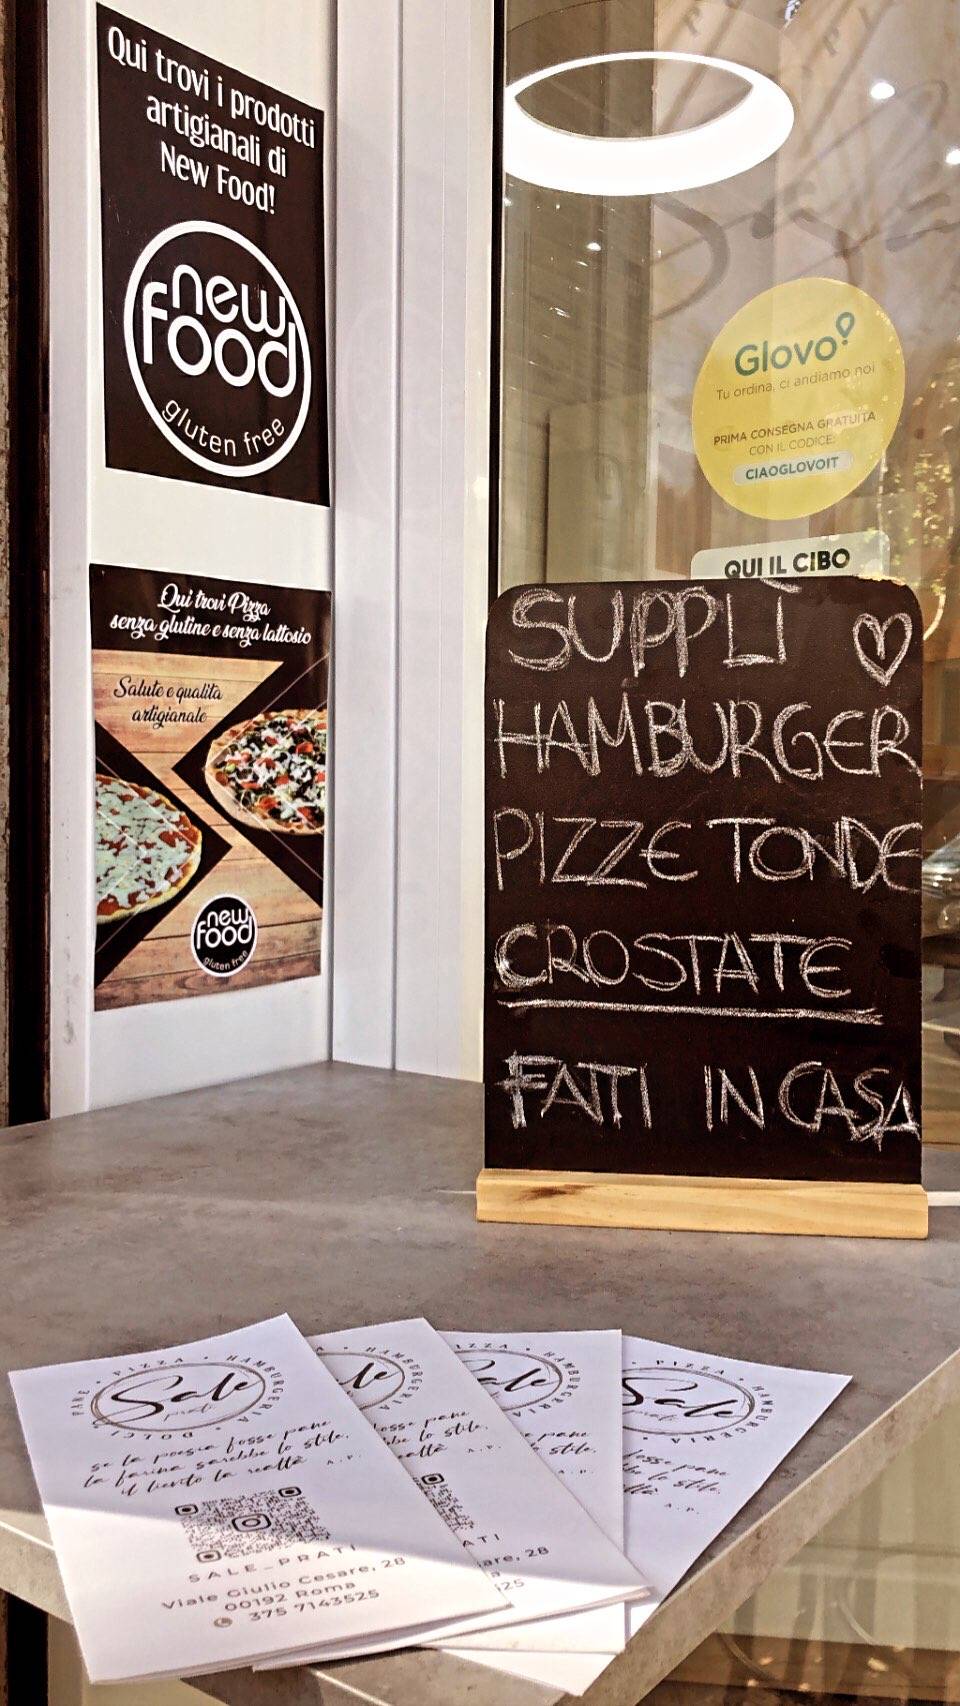 Qui trovi i prodotti
artigianali di
New Food!
new
food
gluten free
Qui trovi Pizza
senza glutine e senza lattosio
Salute e qualità
artigianale
new
food
gluten free
Glovo
Tu ordina, ci andiamo noi
PRIMA CONSEGNA GRATUITA
CON IL CODICE:
CIAOGLOVOIT
QUI IL CIBO
SUPPLÌ
HAMBURGER
PIZZE TONDE
CROSTATE
FATTI IN CASA
PANE • PIZZA • HAMBURGERIA • DOLCI •
Sale
prati
se la poesia fosse pane
la farina sarebbe lo stile,
il lievito la realtà A.P.
SALE_PRATI
Viale Giulio Cesare, 28
00192 Roma
375 7143525
HAMBURGERIA
le
fosse pane
be lo stile,
tà A.P.
RATI
are, 28
25
IZZA • HAMBURGERIA
ale
e pane
stile,
A.P.
PIZZA • HAMBURGERIA •
Sale
prati
fosse pane
be lo stile,
realtà A.P.